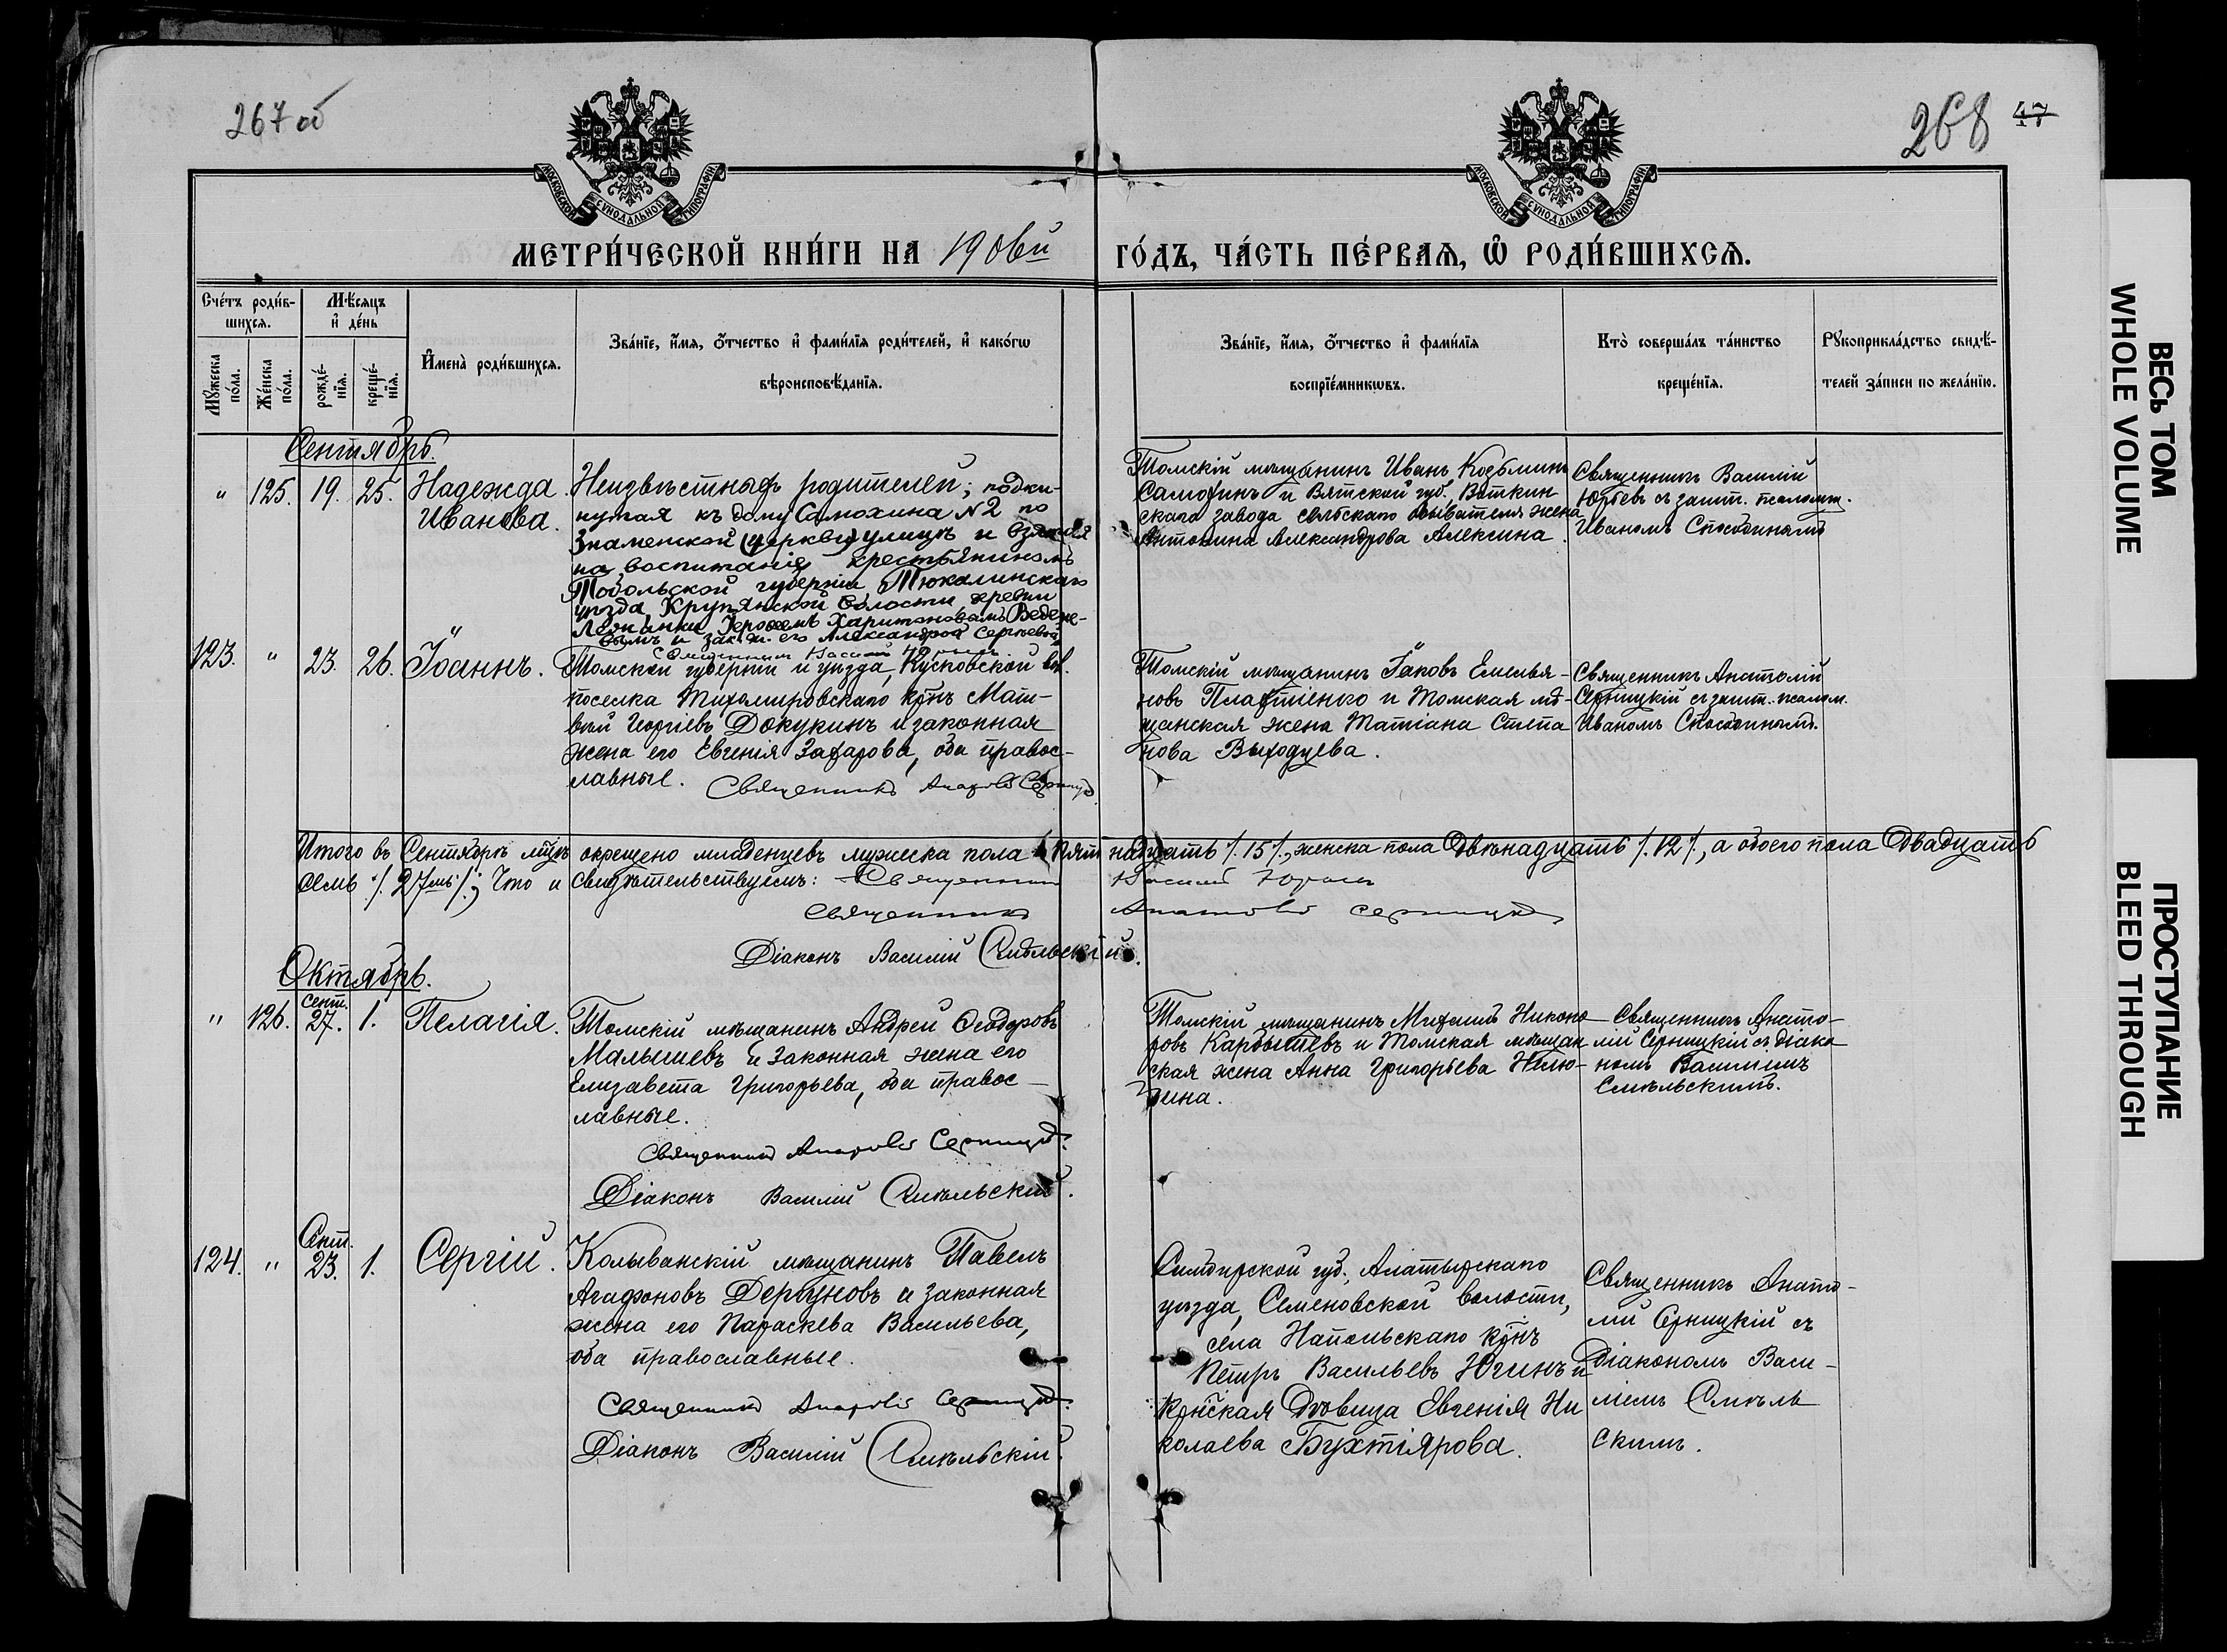 267 об
268 47
МОСКОВСКОЙ СѴНОДАЛЬНОЙ ТИПОГРАФІИ
МОСКОВСКОЙ СѴНОДАЛЬНОЙ ТИПОГРАФІИ
МЕТРИ́ЧЕСКОЙ КНИ́ГИ НА 1906й ГО́ДЪ, ЧА́СТЬ ПЕ́РВАѦ, Ѡ҆ РОДИ́ВШИХСѦ.
Сче́тъ роди́в-
шихсѧ.
Мꙋжеска по́ла.
Же́нска по́ла.
Мѣ́сяцъ
и҆ де́нь
рожде́-нїѧ.
креще́-нїѧ.
И҆мена̀ роди́вшихсѧ.
Зва́нїе, и҆́мѧ, ѻ҆́тчество и҆ фами́лїѧ роди́телей, и҆ како́гѡ
вѣроисповѣ́данїѧ.
Зва́нїе, и҆́мѧ, ѻ҆́тчество и҆ фами́лїѧ
воспрїе́мникѡвъ.
Кто̀ соверша́лъ та́инство
креще́нїѧ.
Рꙋкоприкла́дство свидѣ́-
телей за́писи по жела́нїю.
Сентябрь.
" 125. 19. 25. Надежда
Иванова.
Неизвѣстныхъ родителей; подки-
нутая къ дому Самохина № 2 по
Знаменской (церкви) улицѣ и взятая
на воспитаніе крестьяниномъ
Тобольской губерніи Тюкалинскаго
уѣзда Крупянской волости деревни
Харитоновымъ Веденее-
вымъ и зак. ж. его Александрой Сергѣевой.
Священникъ Василій Юрьевъ
Томскій мѣщанинъ Иванъ Козьминъ
Самохинъ и Вятской губ., Воткин
скаго завода сельскаго обывателя жена
Антонина Александрова Алексина.
Священникъ Василій
Юрьевъ съ зашт. псаломщ.
Иваномъ
123. " 23. 26. Іоаннъ.
Томской губерніи и уѣзда, Кусковской вол.
поселка Тихомировскаго крнъ Мат-
вѣй Георгіевъ Докукинъ и законная
жена его Евгенія Захарова, оба правос-
лавные.
Священникъ Анатолій Серницкій
Томскій мѣщанинъ Іаковъ Емелья-
новъ и Томская мѣ-
щанская жена Татіана Степа
нова Выходцева.
Священникъ Анатолій
Серницкій съ зашт. псалом.
Иваномъ
Итого въ Сентябрѣ мѣсяцѣ окрещено младенцевъ мужеска пола (пятнадцать /.15/., женска пола Двѣнадцать /.12/., а обоего пола Двадцать
семь /.27мь/.; Что и свидѣтельствуемъ: Священникъ Василій Юрьевъ
Священникъ Анатолій Серницкій
Діаконъ Василій Смѣльскій.
Октябрь.
" 126. Сент. 27. 1. Пелагія.
Томскій мѣщанинъ Андрей Ѳеодоровъ
Малышевъ и законная жена его
Елизавета Григорьева, оба правос-
лавные.
Священникъ Анатолій Серницкій.
Діаконъ Василій Смѣльскій.
Томскій мѣщанинъ Михаилъ Никоно
ровъ Карбышевъ и Томская мѣщан
ская жена Анна Григорьева
Священникъ Анато-
лій Серницкій съ діако
номъ Василіемъ
Смѣльскимъ.
124. " Сент. 23. 1. Сергій.
Колыванскій мѣщанинъ Павелъ
Агафоновъ Дергуновъ и законная
жена его Параскева Васильева,
оба православные.
Священникъ Анатолій Серницкій.
Діаконъ Василій Смѣльскій.
Симбирской губ., Алатырскаго
уѣзда, Семеновской волости,
села Напольскаго крнъ
Петръ Васильевъ Югинъ и
крнская дѣвица Евгенія Ни
колаева Бухтіярова.
Священникъ Анато-
лій Серницкій съ
Діакономъ Васи-
ліемъ Смѣль
скимъ.
ВЕСЬ ТОМ
WHOLE VOLUME
ПРОСТУПАНИЕ
BLEED THROUGH